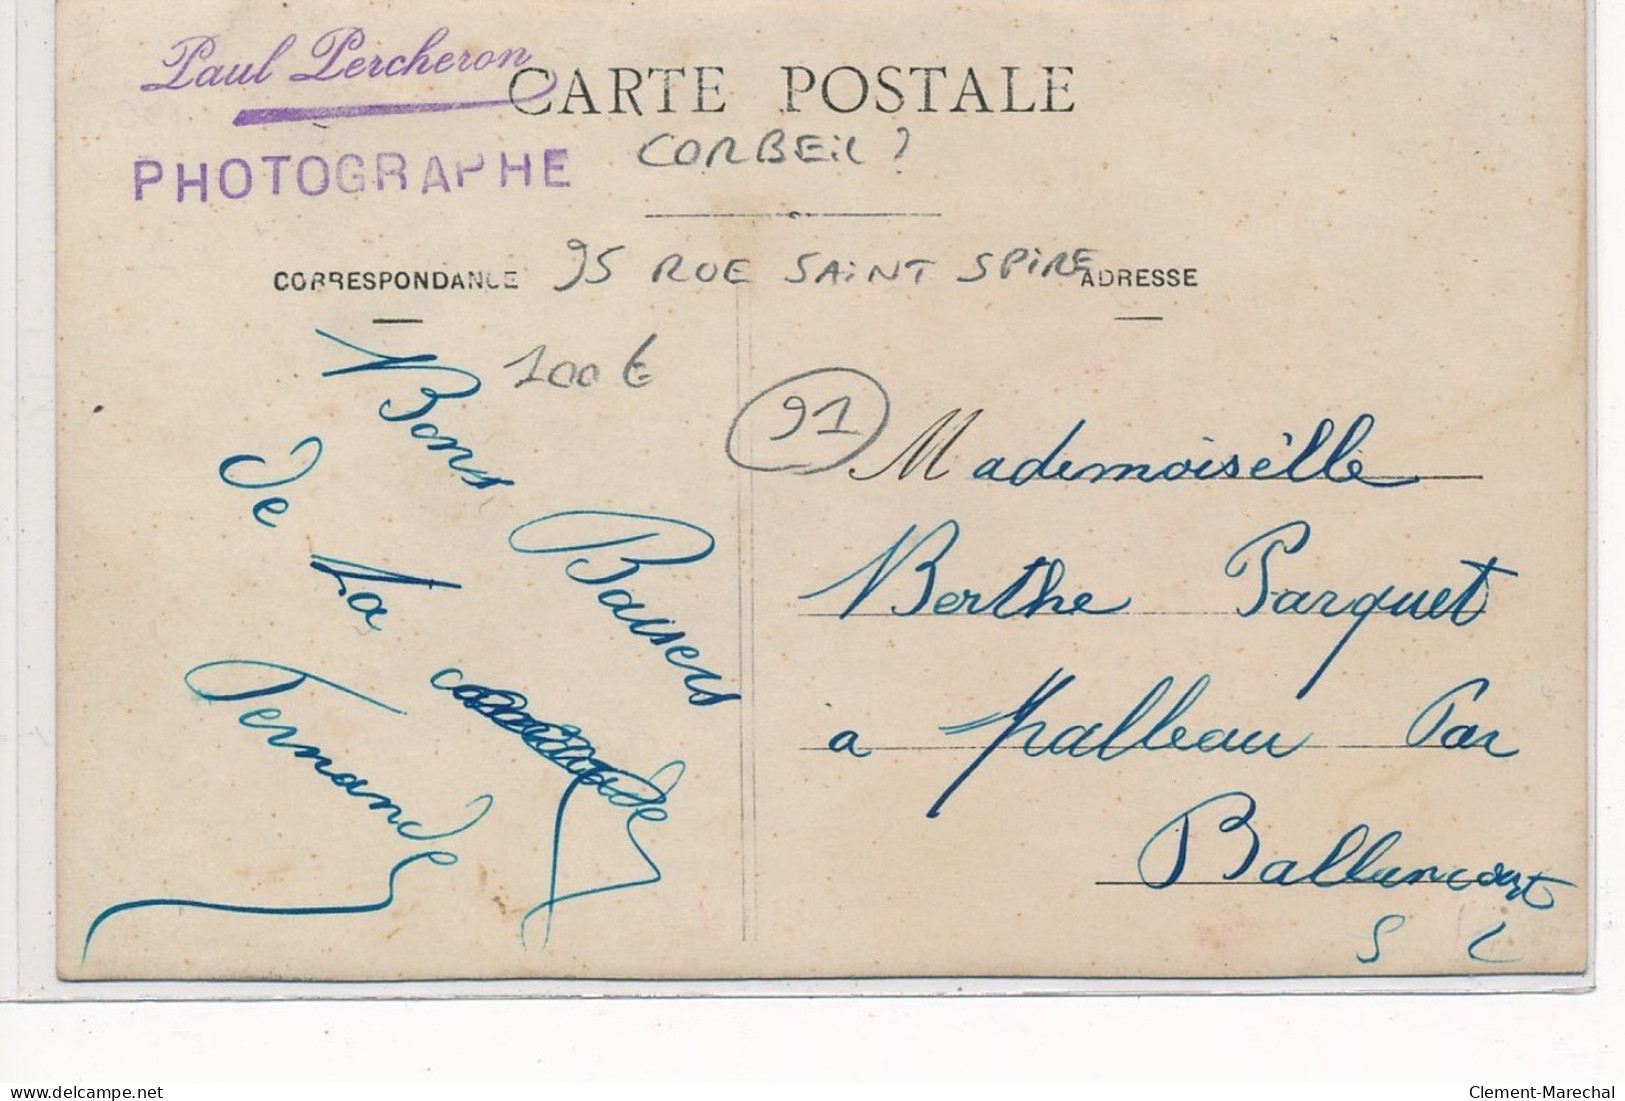 Paul Percheron
PHOTOGRAPHE
CARTE POSTALE
CORBEIL ?
95 RUE SAINT SPIRE
CORRESPONDANCE
ADRESSE
100 €
91
Bons Baisers
de la
Fernande
Mademoisèlle
Berthe Parquet
a Malleau Par
Ballancourt
S
delcampe.net
Clement-Marechal